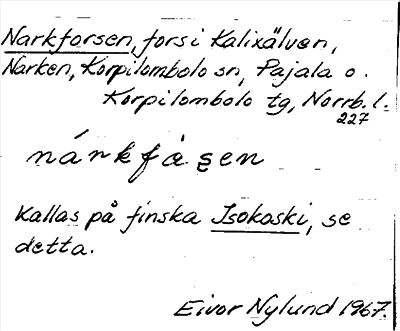 Narkforsen, fors i Kalixälven,
Narken, Korpilombolo sn, Pajala o.
Korpilombolo tg, Norrb. l.
227
nárkfȧsen
Kallas på finska Isokoski, se
detta.
Eivor Nylund 1967.